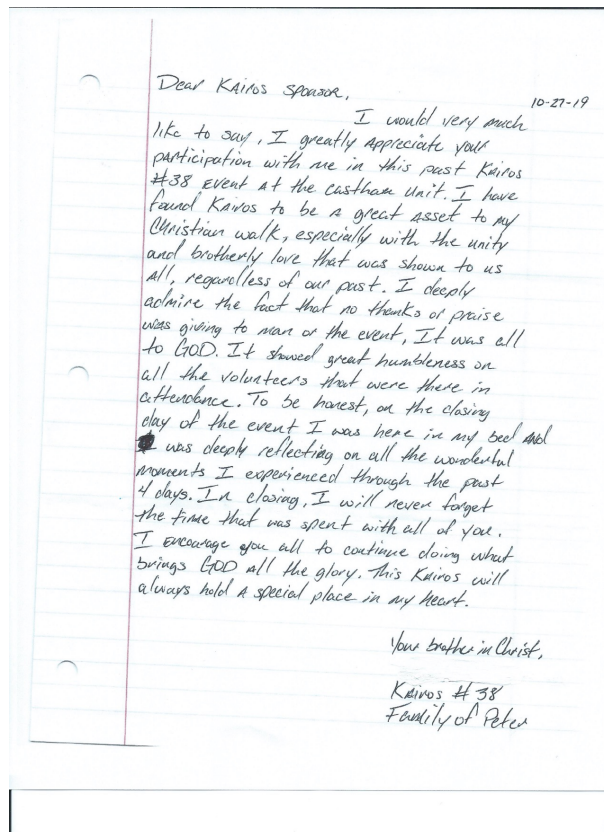 Dear Kairos Sponsor,
10-27-19
I would very much
like to say, I greatly Appreciate your
participation with me in this past Kairos
#38 Event At the Eastham Unit. I have
found Kairos to be A great Asset to my
Christian walk, especially with the unity
and brotherly love that was shown to us
All, regardless of our past. I deeply
admire the fact that no thanks or praise
was giving to man or the event, It was all
to GOD. It showed great humbleness on
all the volunteers that were there in
attendance. To be honest, on the closing
day of the event I was here in my bed And
I was deeply reflecting on all the wonderful
moments I experienced through the past
4 days. In closing, I will never forget
the time that was spent with all of you.
I encourage you all to continue doing what
brings GOD All the glory. This Kairos will
always hold A special place in my heart.
Your brother in Christ,
Kairos #38
Family of Peter